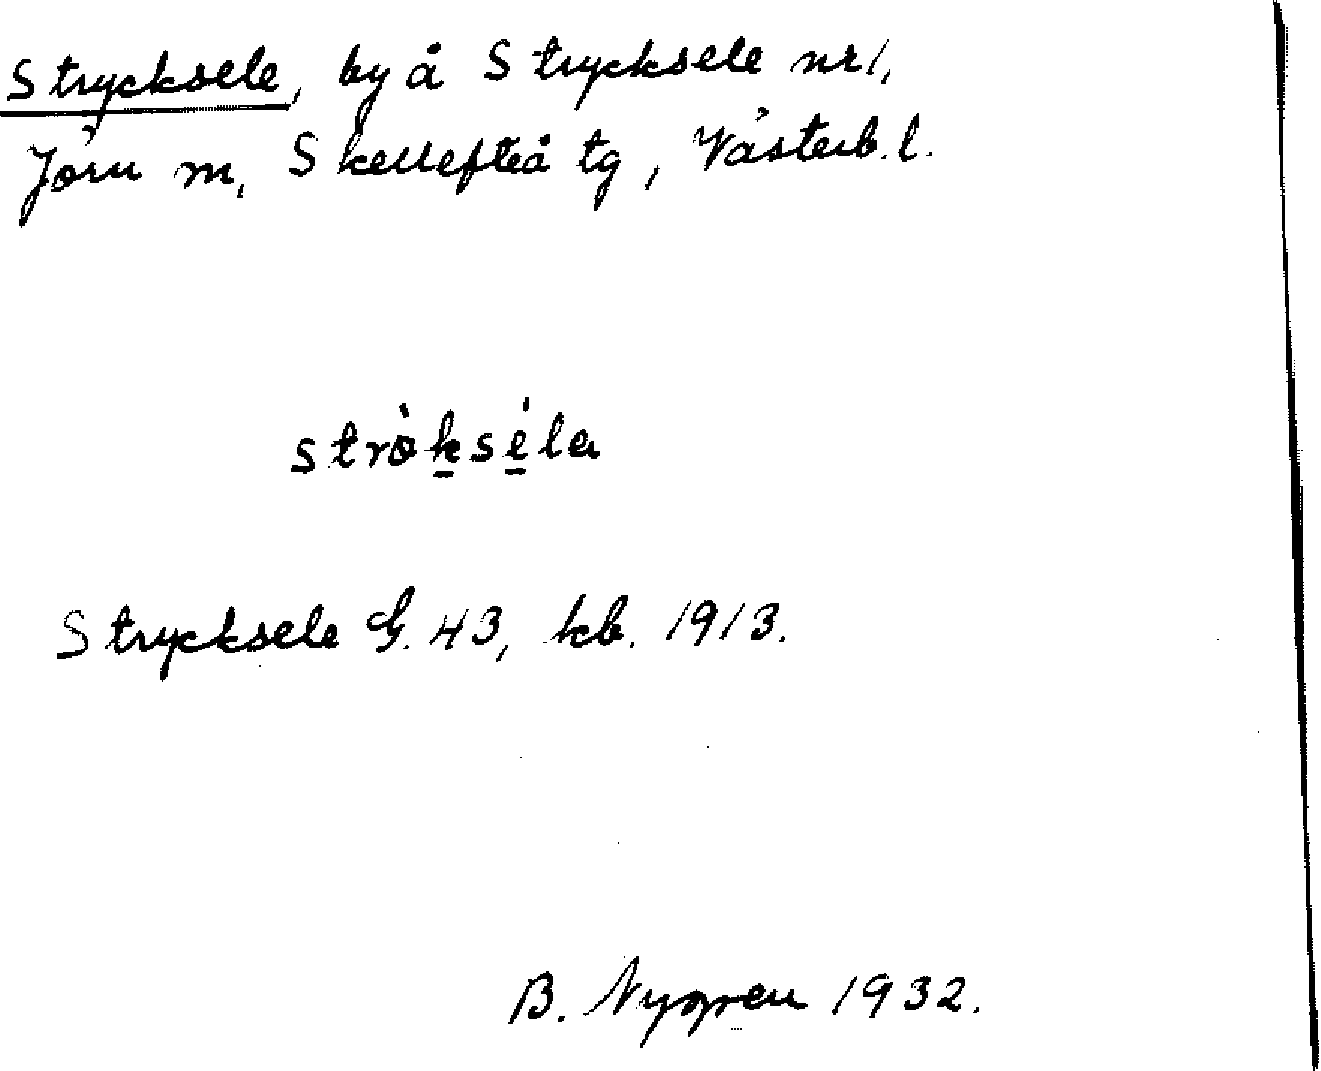 Strycksele, by å Strycksele nr 1,
Jörn sn, Skellefteå tg, Västerb. l.
strò̱ksé̱la
Strycksele G. 43, kb. 1913.
B. Nygren 1932.